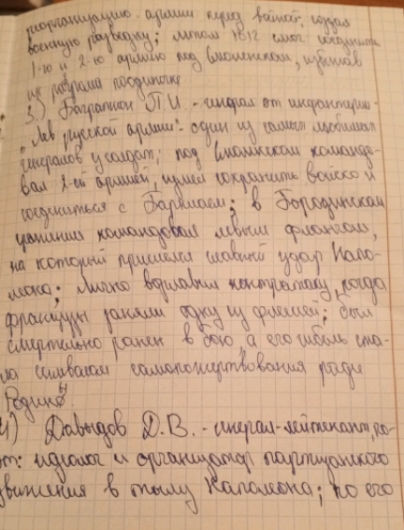 реорганизацию армии перед войной; создал
военную разведку; летом 1812 смог соединить
1-ю и 2-ю армию под Смоленском, избежав
их разгрома поодиночке
3.) Багратион П.И. - генерал от инфантерии -
"Лев русской армии" - один из самых любимых
генералов у солдат; под Смоленском командо-
вал 2-ой армией, сумел сохранить войско и
соединиться с Барклаем; в Бородинском
сражении командовал левым флангом,
на который пришелся главный удар Напо-
леона; лично возглавил контратаку, когда
французы заняли одну из флешей; был
смертельно ранен в бою, а его гибель ста-
ла символом самопожертвования ради
Родины.
4) Давыдов Д.В. - генерал-лейтенант, по-
эт: идеолог и организатор партизанского
движения в тылу Наполеона; по его